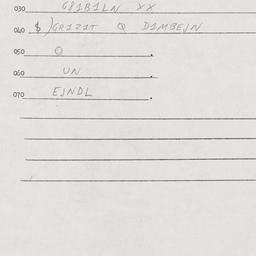 030 G81B1LN XX
040 $ )GR1Z1T Q D1MBEJN
050 O .
060 UN .
070 EJNDL .